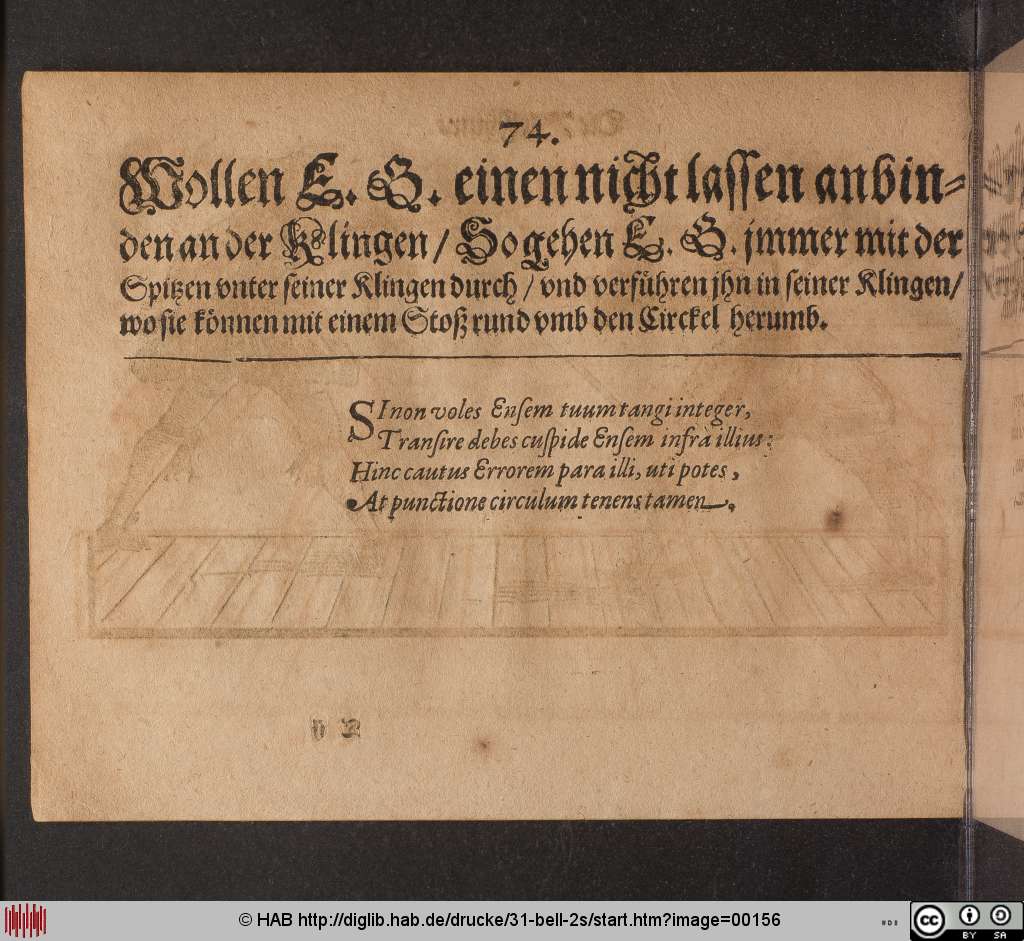 74.
Wollen E. G. einen nicht lassen anbin⸗
den an der Klingen / So gehen E. G. jmmer mit der
Spitzen vnter seiner Klingen durch / vnd verführen jhn in seiner Klingen /
wo sie können mit einem Stoß rund vmb den Circkel herumb.
SI non voles Ensem tuum tangi integer,
Transire debes cuspide Ensem infrà illius:
Hinc cautus Errorem para illi, uti potes,
At punctione circulum tenens tamen.
© HAB http://diglib.hab.de/drucke/31-bell-2s/start.htm?image=00156
cc BY SA